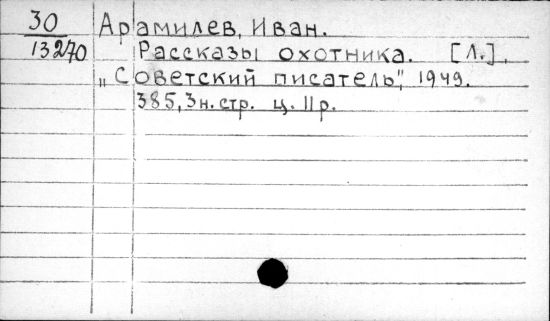 30
13270
Арамилев, Иван.
Рассказы охотника. [Л.],
„Советский писатель", 1949.
385, 3 н. стр. ц. 11 р.